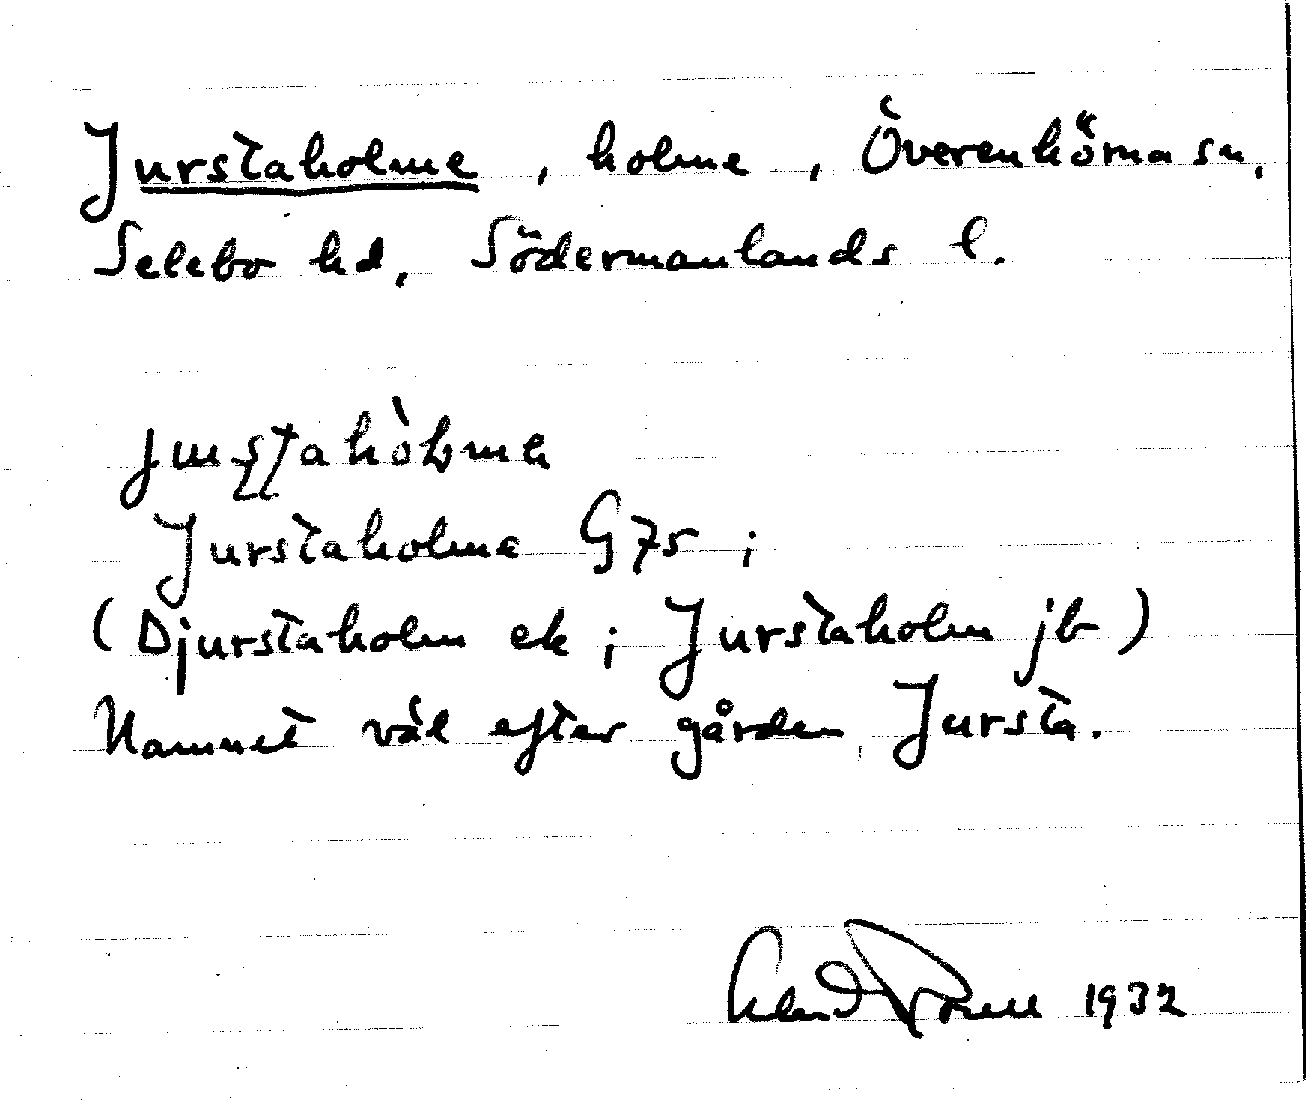 Jurstaholme, holme, Överenhörna sn,
Selebo hd, Södermanlands l.
Jurstaholme G75;
(Djurstaholm ek; Jurstaholm jb)
Namnet väl efter gården Jursta.
1932